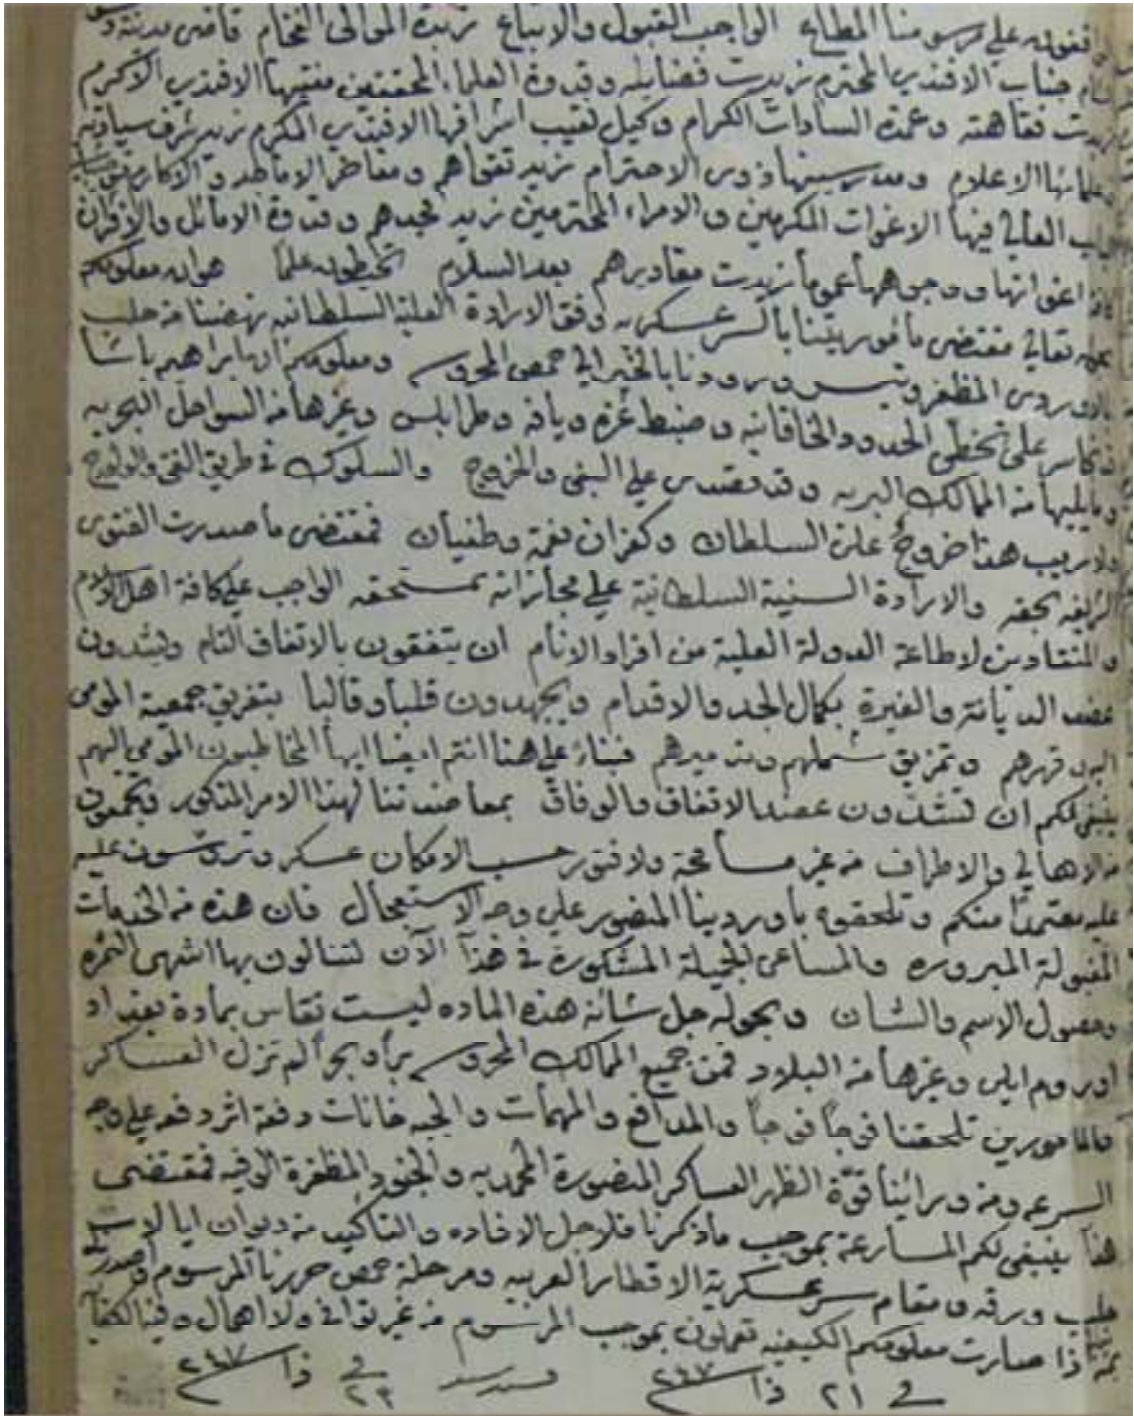 واقفون على مرسومنا المطاع الواجب القبول والاتباع زبدة الموالى الفخام قاضى مدينة
جناب الافندي المحترم زيدت فضايله وقدوة العلماء المحققين مفتيها الافندي الاكرم
زيدت فقاهته وعمدة السادات الكرام وكيل نقيب اشرافها الافندي المكرم زيد شرف سيادته
وعلمائها الاعلام ومدرسينها ذوى الاحترام زيد تقواهم ومفاخر الاماجد والاكارم
العالي فيها الاغوات المكرمين والامراء المحترمين زيد مجدهم وقدوة الاماثل والاقران
اغواتها ووجوهها عموما زيدت مقاديرهم بعد السلام تحيطون علما هو انه معلومكم
تعالى مقتضى مأموريتنا بالسر عسكريه وفق الارادة العلية السلطانيه نهضنا من حلب
بالاوردى المظفر وتيسر ورودنا بالخير الي حمص المحروسه ومعلومكم ان ابراهيم باشا
تجاسر على تخطى الحدود الخاقانيه وضبط غزه ويافه وطرابلس وغيرها من السواحل البحريه
وما يليها من الممالك البريه وقد قصد على البغى والخروج والسلوك في طريق الغي والولوج
ولا ريب هذا خروج على السلطان وكفران نعمة وطغيان فمقتضى ما صدرت الفتوى
الشريفه بحقه والارادة السنية السلطانية على مجازاته بمستحقه الواجب على كافة اهل الاسلام
والمنقادين لاطاعة الدولة العلية من افراد الانام ان يتفقون بالاتفاق التام ويشدون
عضد الديانة والغيرة بكمال الجد والاقدام ويجهدون قلبا وقالبا بتفريق جمعية المومى
اليه وقهرهم وتمزيق شملهم وتدميرهم فبناء على هذا انتم ايضا ايها المخاطبون المومى اليهم
ينبغى لكم ان تشدون عضد الاتفاق والوفاق بمعاضدتنا لهذا الامر المذكور وتجمعون
من الاهالي والاطراف من غير مسامحة ولا فتور حسب الامكان عسكر وترؤسون عليه
عليه معتمدا منكم وتلحقوه بأوردينا المنصور على وجه الاستعجال فان هذه من الخدمات
المقبولة المبروره والمساعى الجميلة المشكورة في هذا الآن لتنالون بها اشهى الثمره
وحصول الاسم والشان وبحوله جل شانه هذه الماده ليست تقاس بمادة بغداد
او روم ايلى وغيرها من البلاد فمن جميع الممالك المحروسه برا وبحرا لم تزل العساكر
والمامورين تلحقنا فوجا فوجا والمدافع والمهمات والجبه خانات دفعة اثر دفعه على وجه
السرعه ومن ورائينا قوة الظهر العساكر المنصورة المحمديه والجنود المظفرة الوفيه فمقتضى
هذا ينبغى لكم المسارعة بموجب ماذكرنا فلاجل الافاده والتاكيد من ديوان ايالات
حلب ورقه ومقام سر عسكرية الاقطار العربيه ومرحلة حمص حررنا المرسوم واصدرناه
اذا صارت معلومكم الكيفيه تعملون بموجب المرسوم من غير توانى ولا اهمال وفينا الكفايه
في ٢١ ذا سنه ٢٤٧ في ٢٩ ذا سنه ٢٤٧